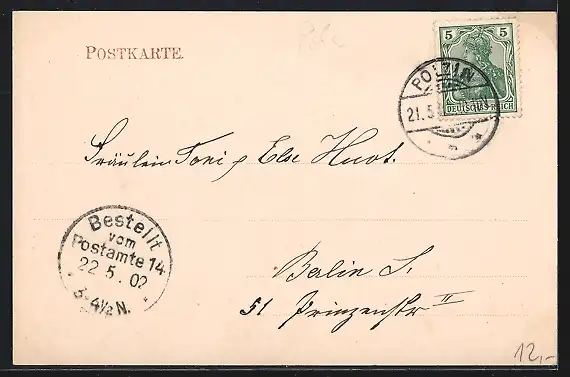 POSTKARTE.
5 5
DEUTSCHES REICH
POLZIN
21.5
Fräulein Toni & Else Huot.
Bestellt
vom
Postamte 14
22 5. 02
3-4½ N.
Berlin S.
51 Prinzenstr II
12,-